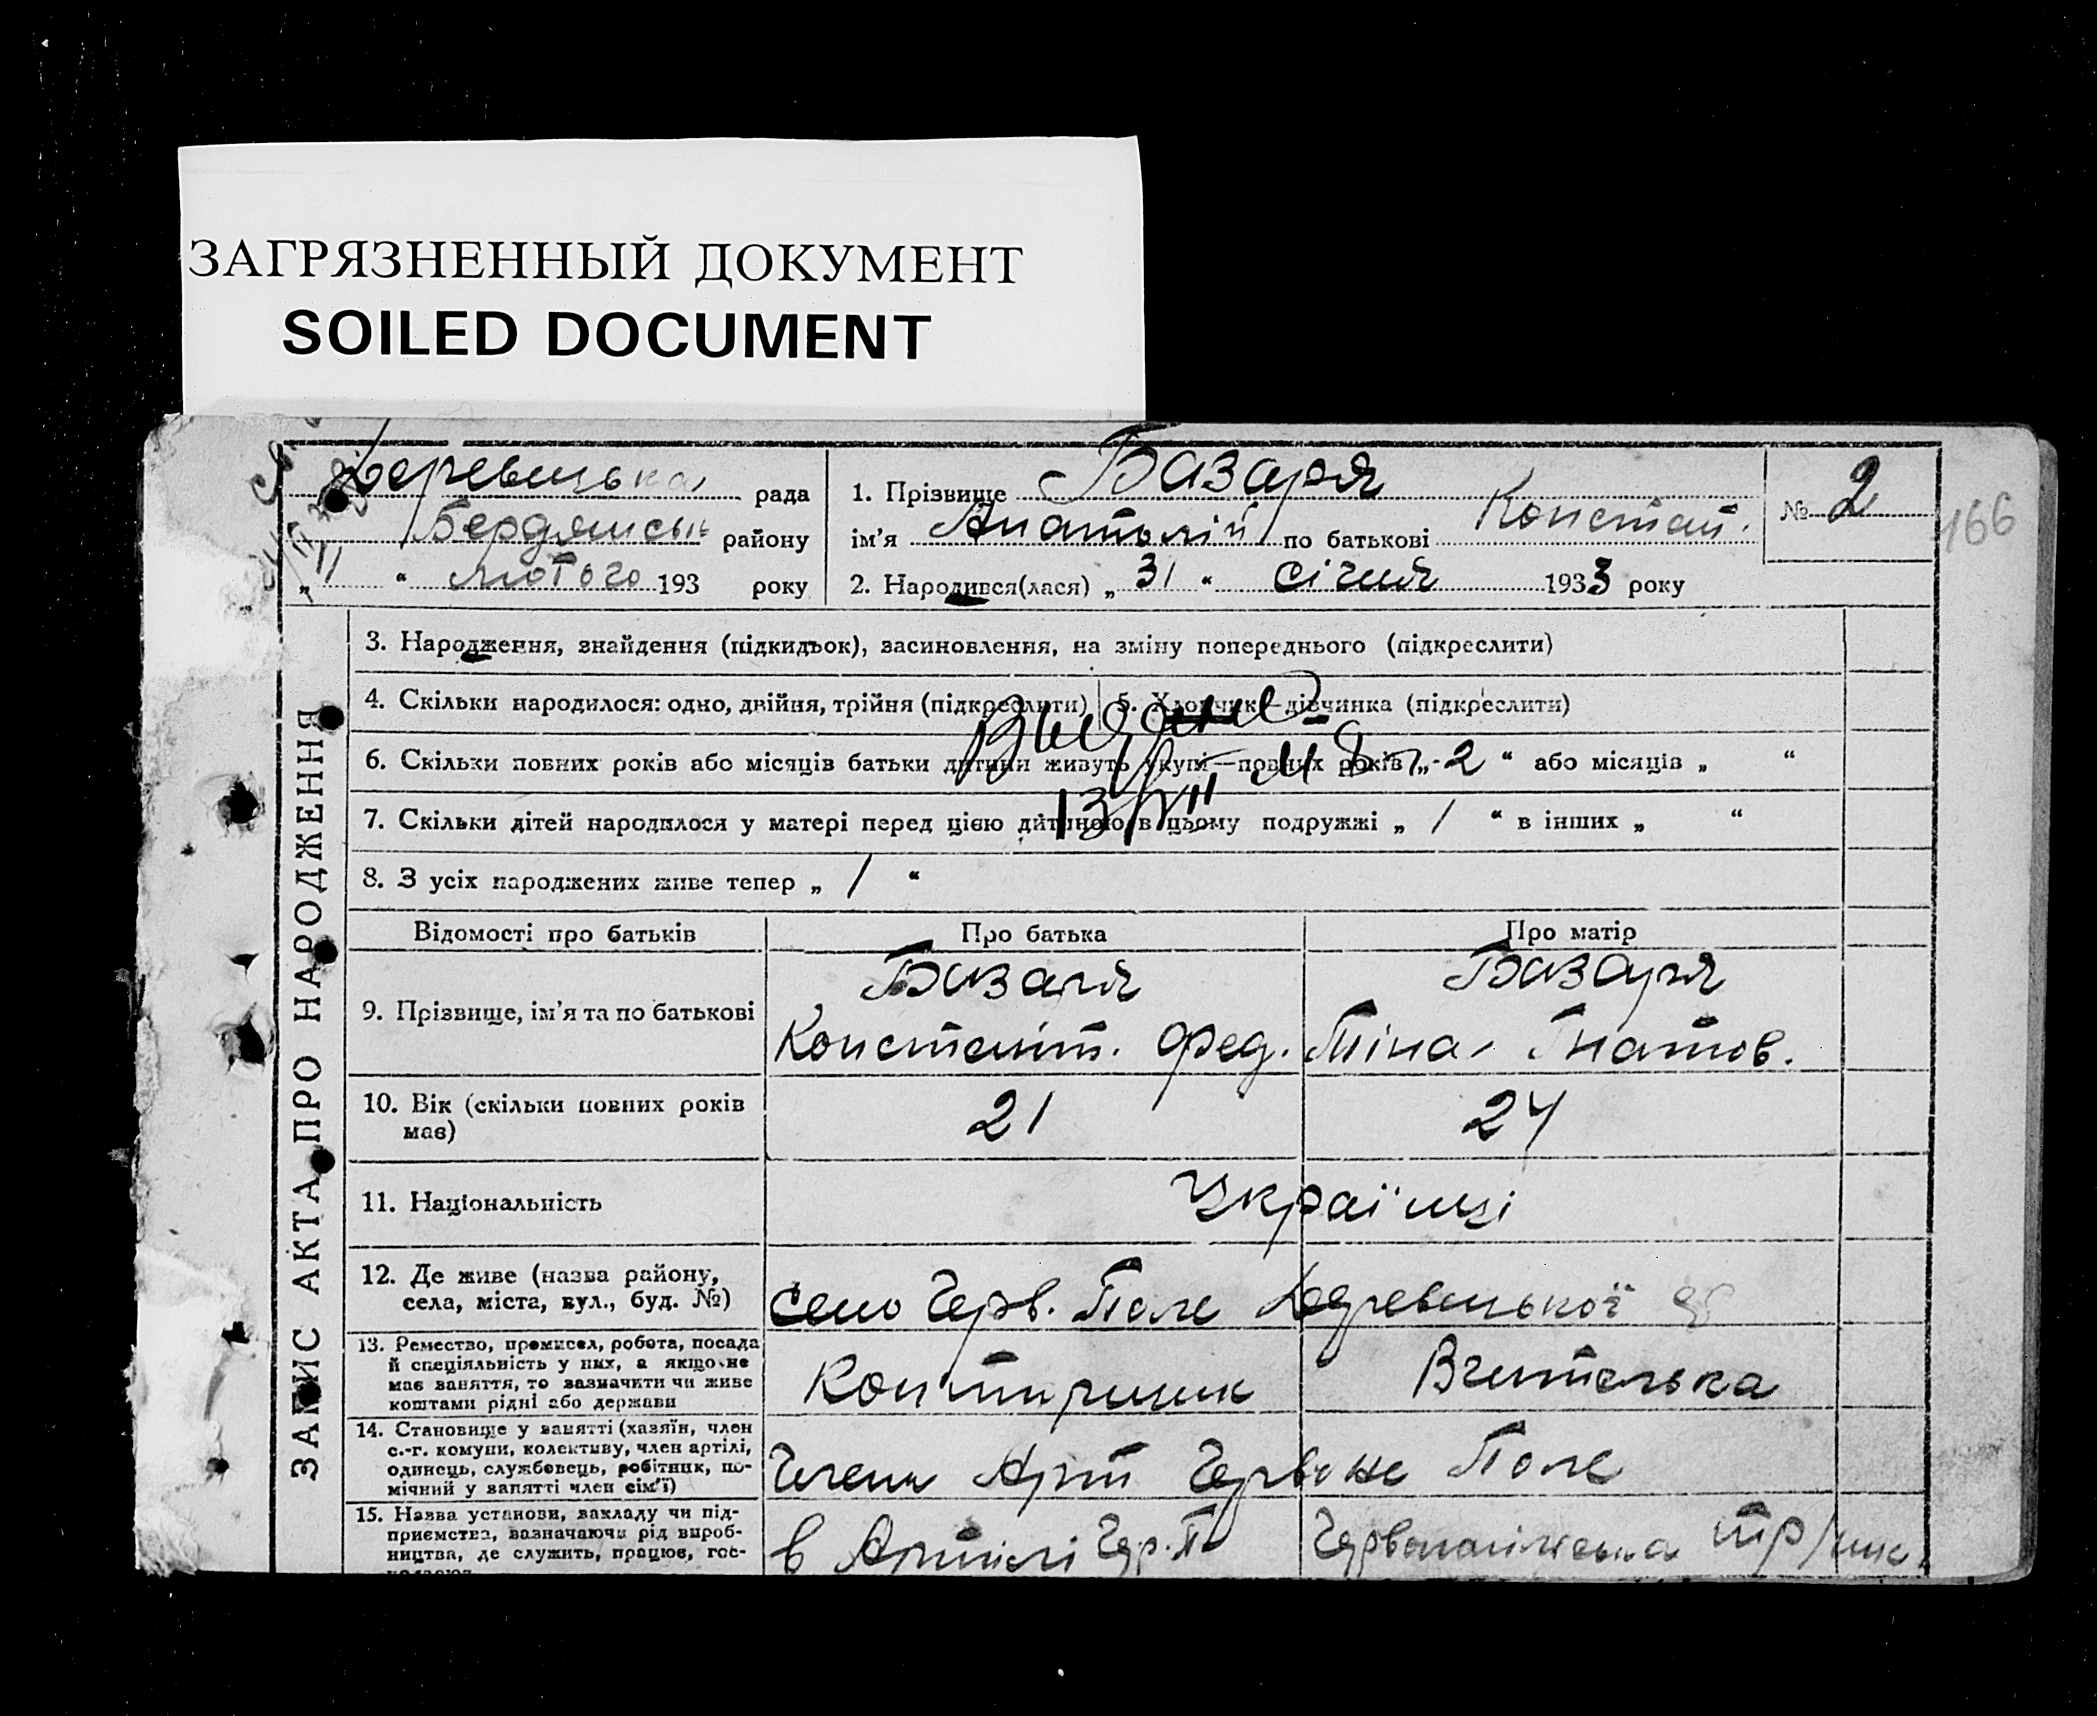 ЗАГРЯЗНЕННЫЙ ДОКУМЕНТ
SOILED DOCUMENT
рада
Бердянськ району
„ 11 “ лютого 193 року
1. Прізвище Базаря
ім'я Анатолій по батькові Констат.
2. Народився(лася) „ 31 “ січня 1933 року
№ 2
166
ЗАПИС АКТА ПРО НАРОДЖЕННЯ
3. Народження, знайдення (підкидьок), засиновлення, на зміну попереднього (підкреслити)
4. Скільки народилося: одно, двійня, трійня (підкреслити)
5. Хлопчик—дівчинка (підкреслити)
6. Скільки повних років або місяців батьки дитини живуть вкупі—повних років „ 2 “ або місяців „ “
13/VII
7. Скільки дітей народилося у матері перед цією дитиною в цьому подружжі „ 1 “ в інших „ “
8. З усіх народжених живе тепер „ 1 “
Відомості про батьків Про батька Про матір
9. Прізвище, ім'я та по батькові
Базаря
Констант. Фед.
Базаря
Гнатов.
10. Вік (скільки повних років
має)
21 24
11. Національність Українці
12. Де живе (назва району,
села, міста, вул., буд. №)
село Черв. Поле
13. Ремество, промисел, робота, посада
й спеціяльність у них, а якщо не
має заняття, то зазначити чи живе
коштами рідні або держави
Вчителька
14. Становище у занятті (хазяїн, член
с.-г. комуни, колективу, член артілі,
одинець, службовець, робітник, по-
мічний у занятті член сім'ї)
Член Арт Червоне Поле
15. Назва установи, закладу чи під-
приємства, зазначаючи рід вироб-
ництва, де служить, працює, гос-
в Артілі Чер. П